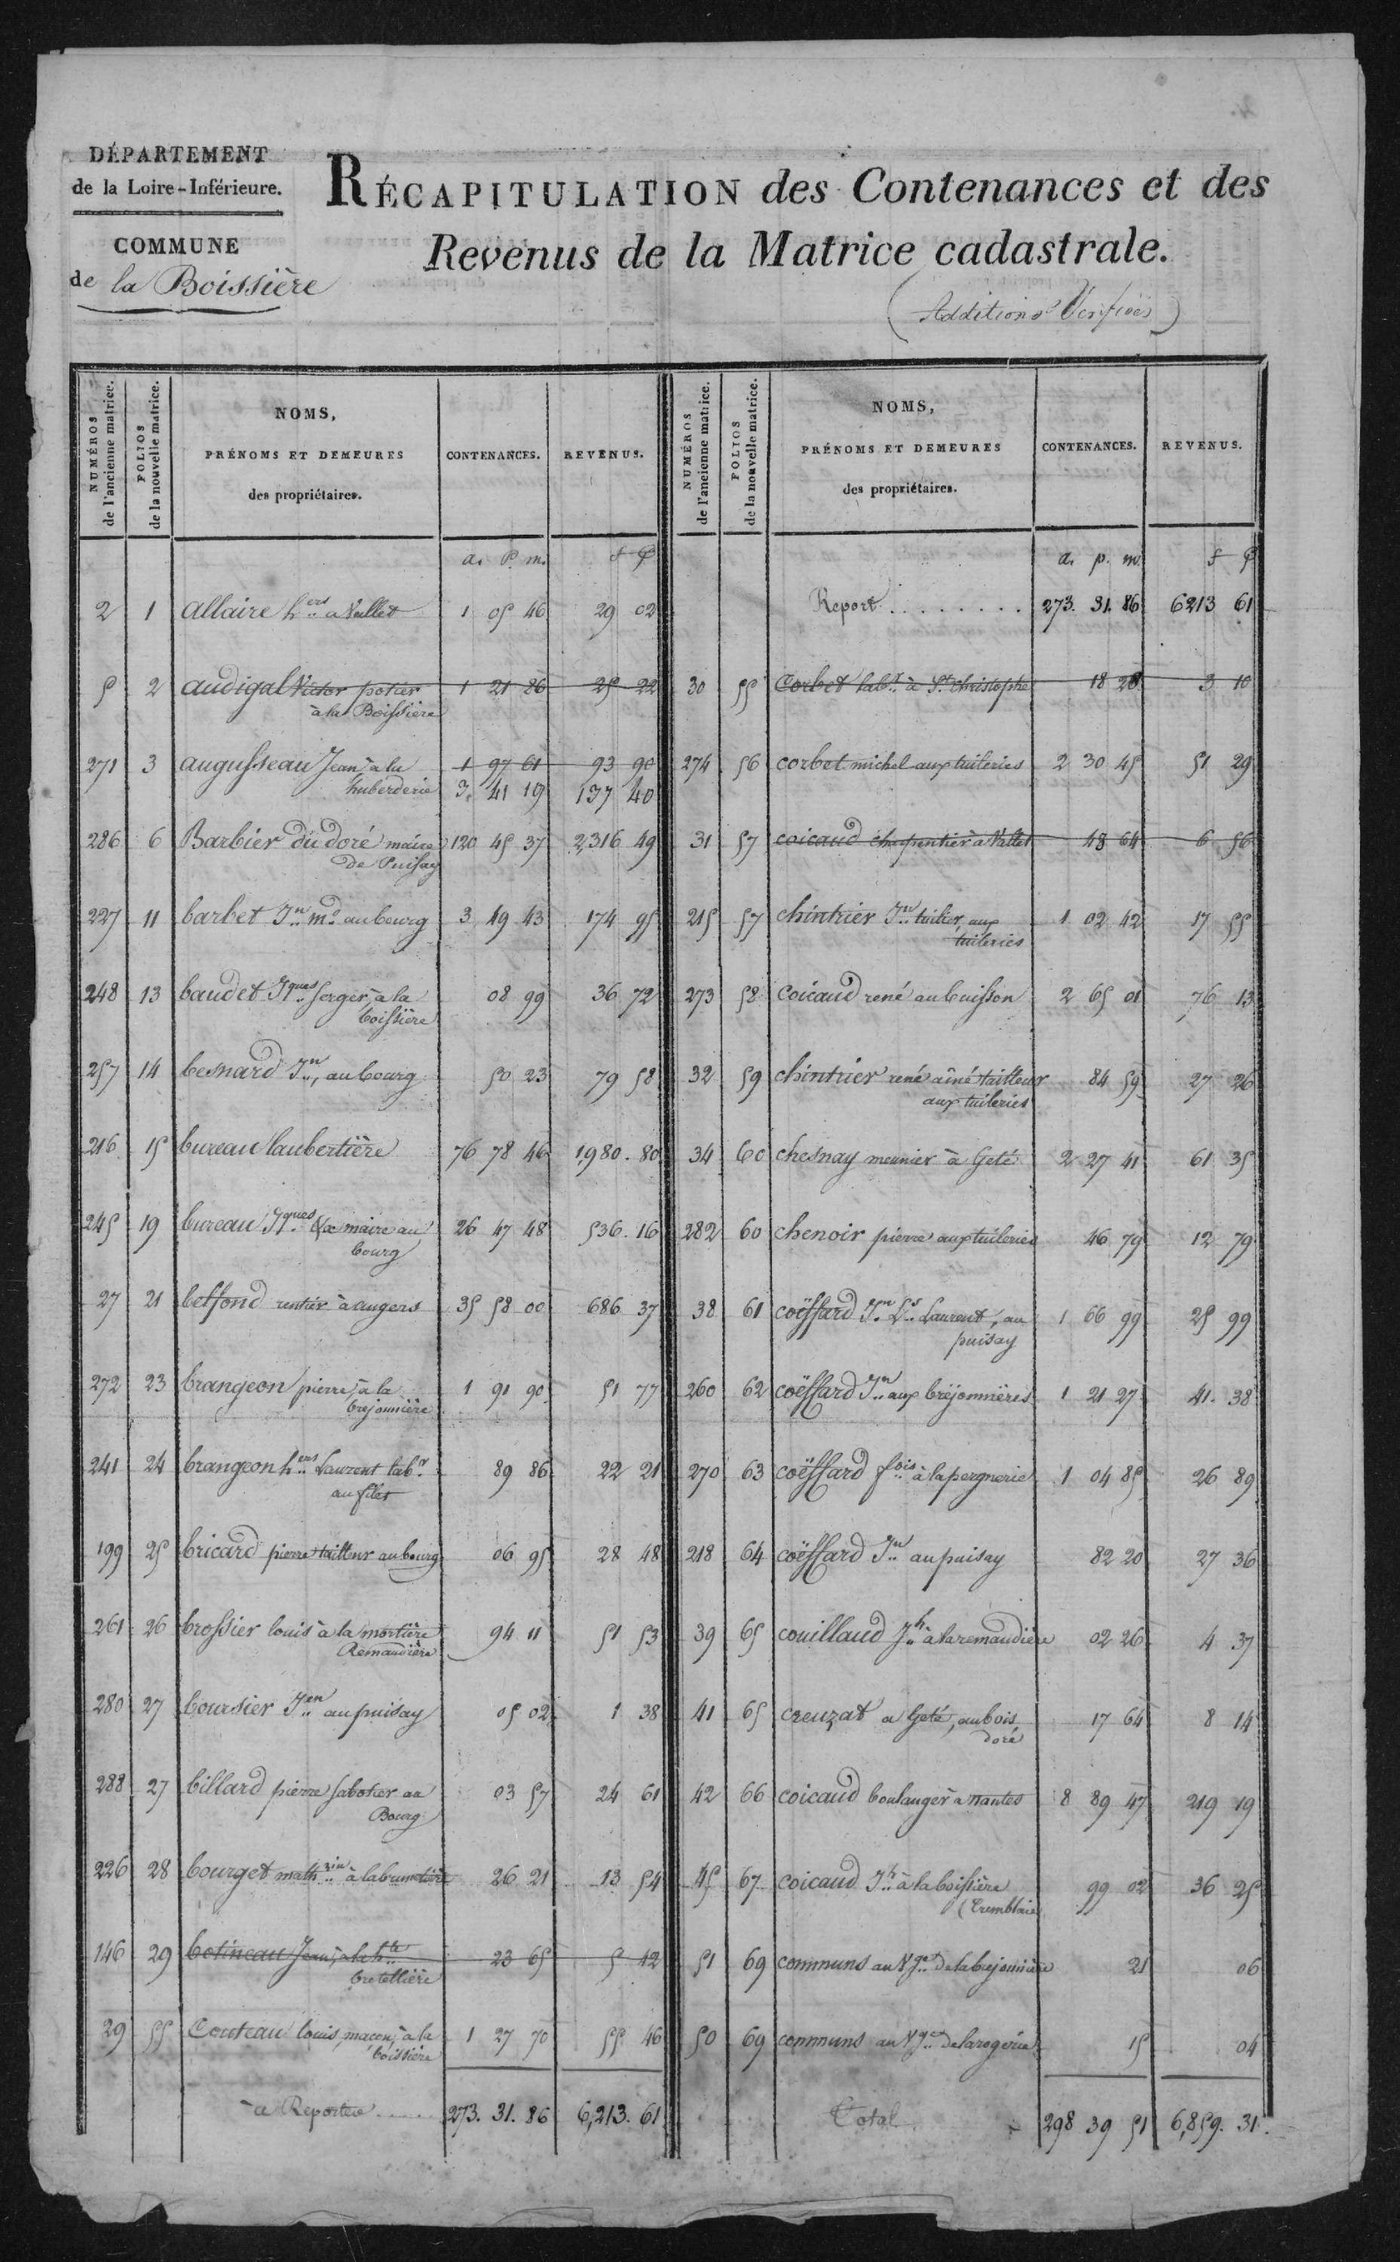 DÉPARTEMENT
de la Loire-Inférieure.
COMMUNE
de la Boissière
RÉCAPITULATION des Contenances et des
Revenus de la Matrice cadastrale.
(Additions Vérifiées)
NUMÉROS de l'ancienne matrice. FOLIOS de la nouvelle matrice. NOMS, PRÉNOMS ET DEMEURES des propriétaires. CONTENANCES. REVENUS.
a. p. m. f c
2 1 allaire h.ers a Vallet 1 05 46 29 02
5 2 audigal Victor potier 1 21 86 25 22
à la Boissière
271 3 augusseau Jean à la 1 97 61 93 90
huberderie 3. 41 19 137 40
286 6 Barbier du doré maire 120 45 37 2,316 49
de Puisay
227 11 barbet J.n m.d au bourg 3 49 43 174 95
248 13 baudet J.ques serger, à la 08 99 36 72
boissière
257 14 besnard J.n, au bourg 50 23 79 58
216 15 bureau laubertière 76 78 46 1,980. 80
245 19 bureau J.ques Ex maire au 26 47 48 536. 16
bourg
27 21 belfond rentier à angers 35 58 00 686 37
272 23 brangeon pierre, à la 1 91 90 51 77
brejonnière
241 24 brangeon h.ers Laurent lab.r 89 86 22 21
au filet
199 25 bricard pierre tailleur au bourg 06 95 28 48
261 26 brossier louis à la mortière 94 11 51 53
Remaudière
280 27 boursier J.en au puisay 05 02 1 38
288 27 billard pierre sabotier au 03 57 24 61
Bourg
226 28 bourget math.rin à la brunetière 26 21 13 54
146 29 botineau Jean, à la h.te 23 65 5 12
bretellière
29 55 Couteau louis, maçon, à la 1 27 70 55 46
boissière
à Reporter ..... 273. 31. 86 6,213. 61
NUMÉROS de l'ancienne matrice. FOLIOS de la nouvelle matrice. NOMS, PRÉNOMS ET DEMEURES des propriétaires. CONTENANCES. REVENUS.
a. p. m. f c
Report ........ 273. 31. 86 6213 61
30 55 Corbet lab.r à S.t christophe 18 28 3 10
274 56 corbet michel aux tuileries 2 30 45 51 29
31 57 coicaud charpentier à Vallet 48 64 6 56
215 57 chintrier J.n tuilier, aux 1 02 42 17 55
tuileries
273 58 coicaud rené au buisson 2 65 01 76 13
32 59 chintrier rené aîné tailleur 84 59 27 26
aux tuileries
34 60 chesnay meunier à Geté 2 27 41 61 35
282 60 chenoir pierre aux tuileries 46 79 12 79
38 61 coëffard J.n L.s Laurent, au 1 66 99 25 99
puisay
260 62 coëffard J.n aux brejonnières 1 21 27 41. 38
270 63 coëffard f.ois à la pergnerie 1 04 85 26 89
218 64 coëffard J.n au puisay 82 20 27 36
39 65 couillaud J.h à la remaudière 02 26 4 37
41 65 creuzat a Geté, au bois 17 64 8 14
doré
42 66 coicaud boulanger à nantes 8 89 47 219 19
45 67 coicaud J.h à la boissière 99 02 36 25
(Tremblaie
51 69 communs au V.ge de la brejonnière 21 06
50 69 communs au V.ge de la rogerie 15 04
Total 298 39 51 6,859. 31.